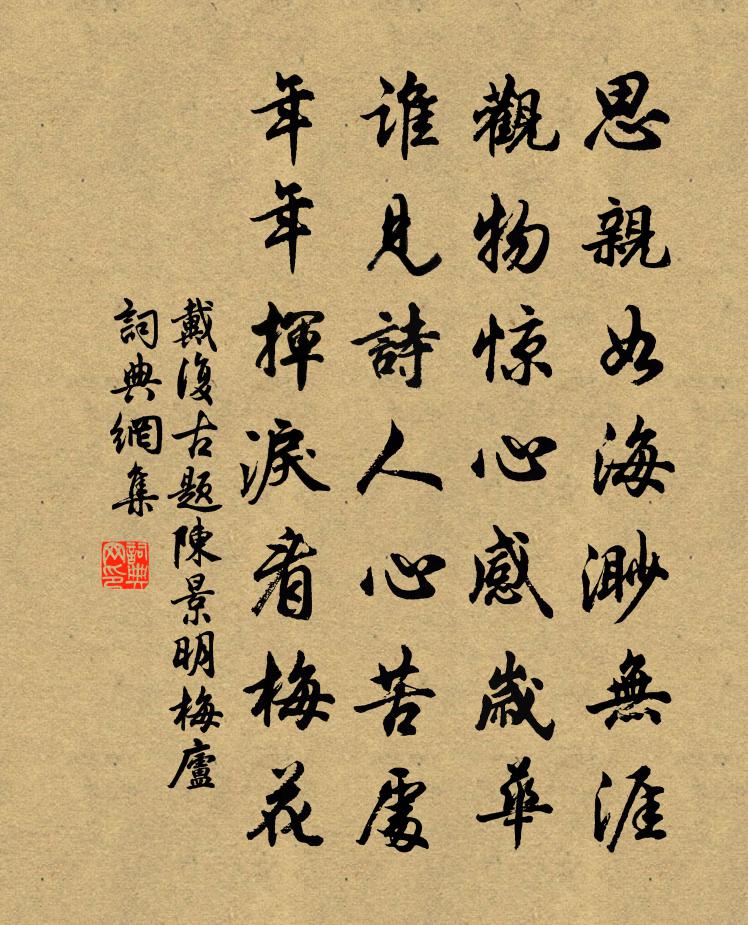 思親如海渺無涯
觀物惊心感歲華
誰見詩人心苦處
年年揮淚看梅花
戴復古題陳景明梅廬
詞典網集
詞典网印